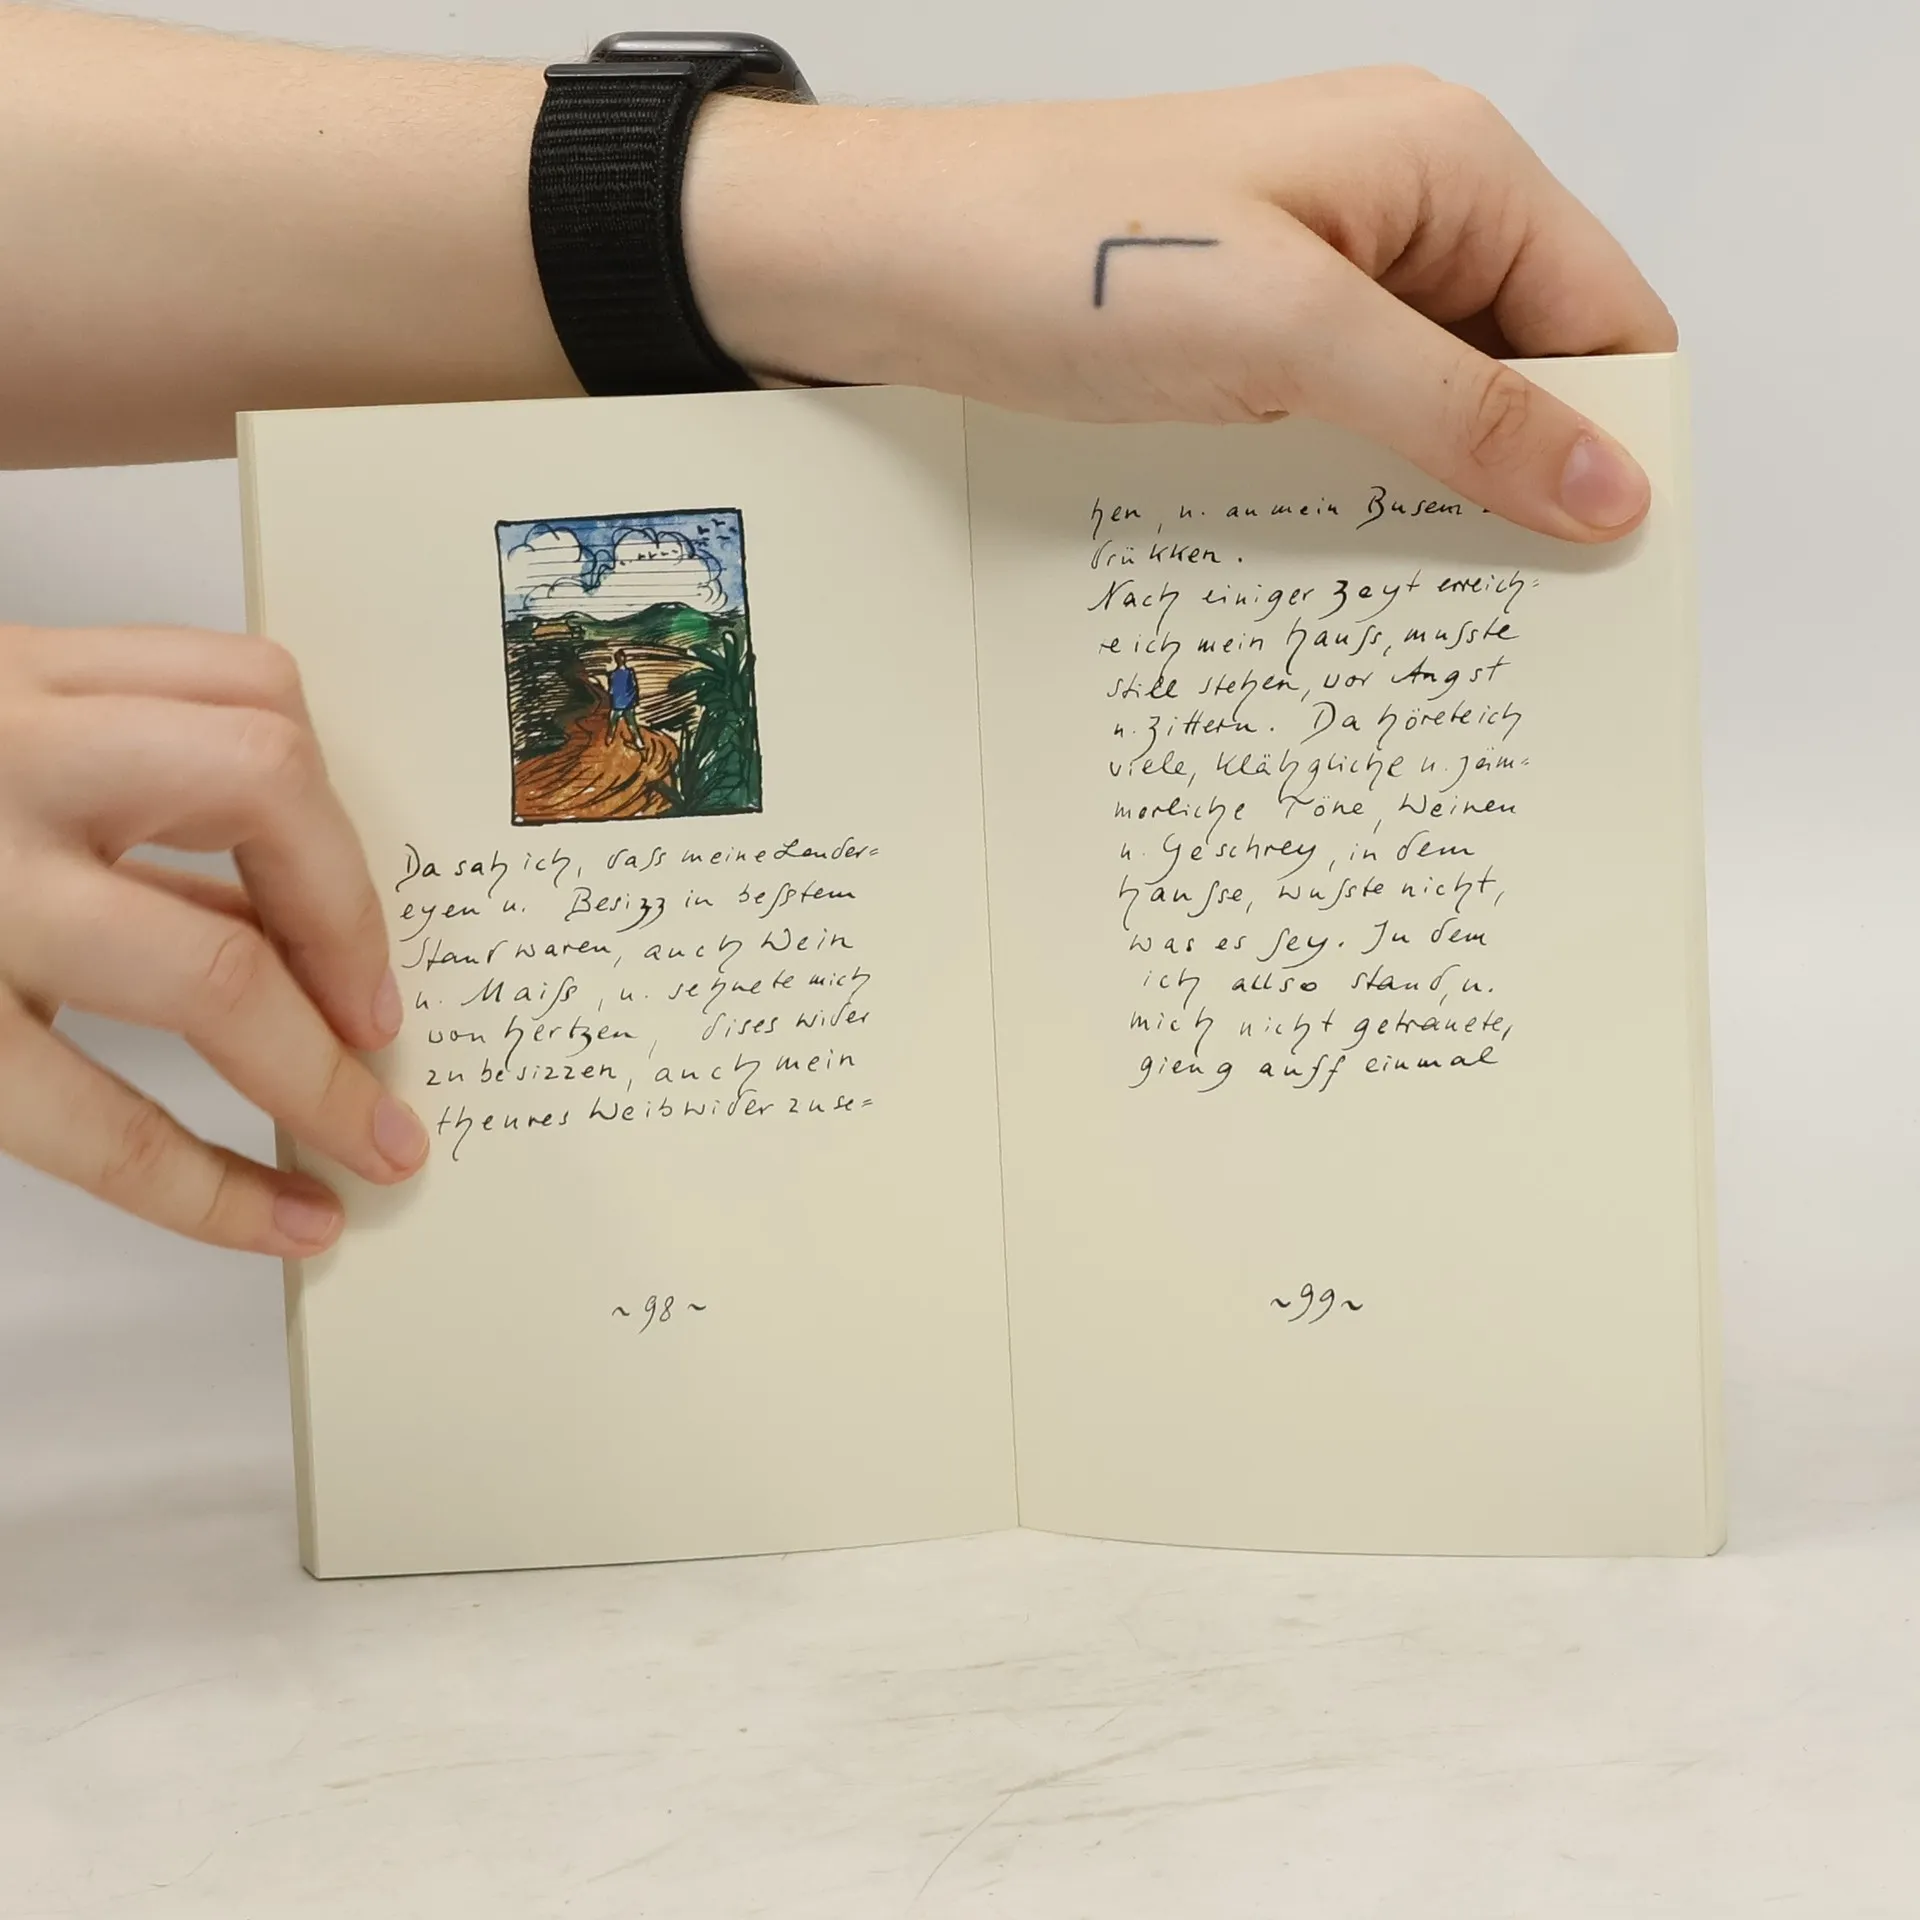 Da sah ich, dass meine Lender=
eyen u. Besizz in besstem
Stand waren, auch Wein
u. Maiss, u. sehnete mich
von hertzen, dises wider
zu besizzen, auch mein
theures Weib wider zu se=
~98~
hen, u. an mein Busem
drükken.
Nach einiger Zeyt erreich=
te ich mein hauss, musste
still stehen, vor Angst
u. Zittern. Da hörete ich
viele, klähgliche u. jäm=
merliche Töne, Weinen
u. Geschrey, in dem
hausse, wusste nicht,
was es sey. In dem
ich allso stand, u.
mich nicht getrauete,
gieng auff einmal
~99~